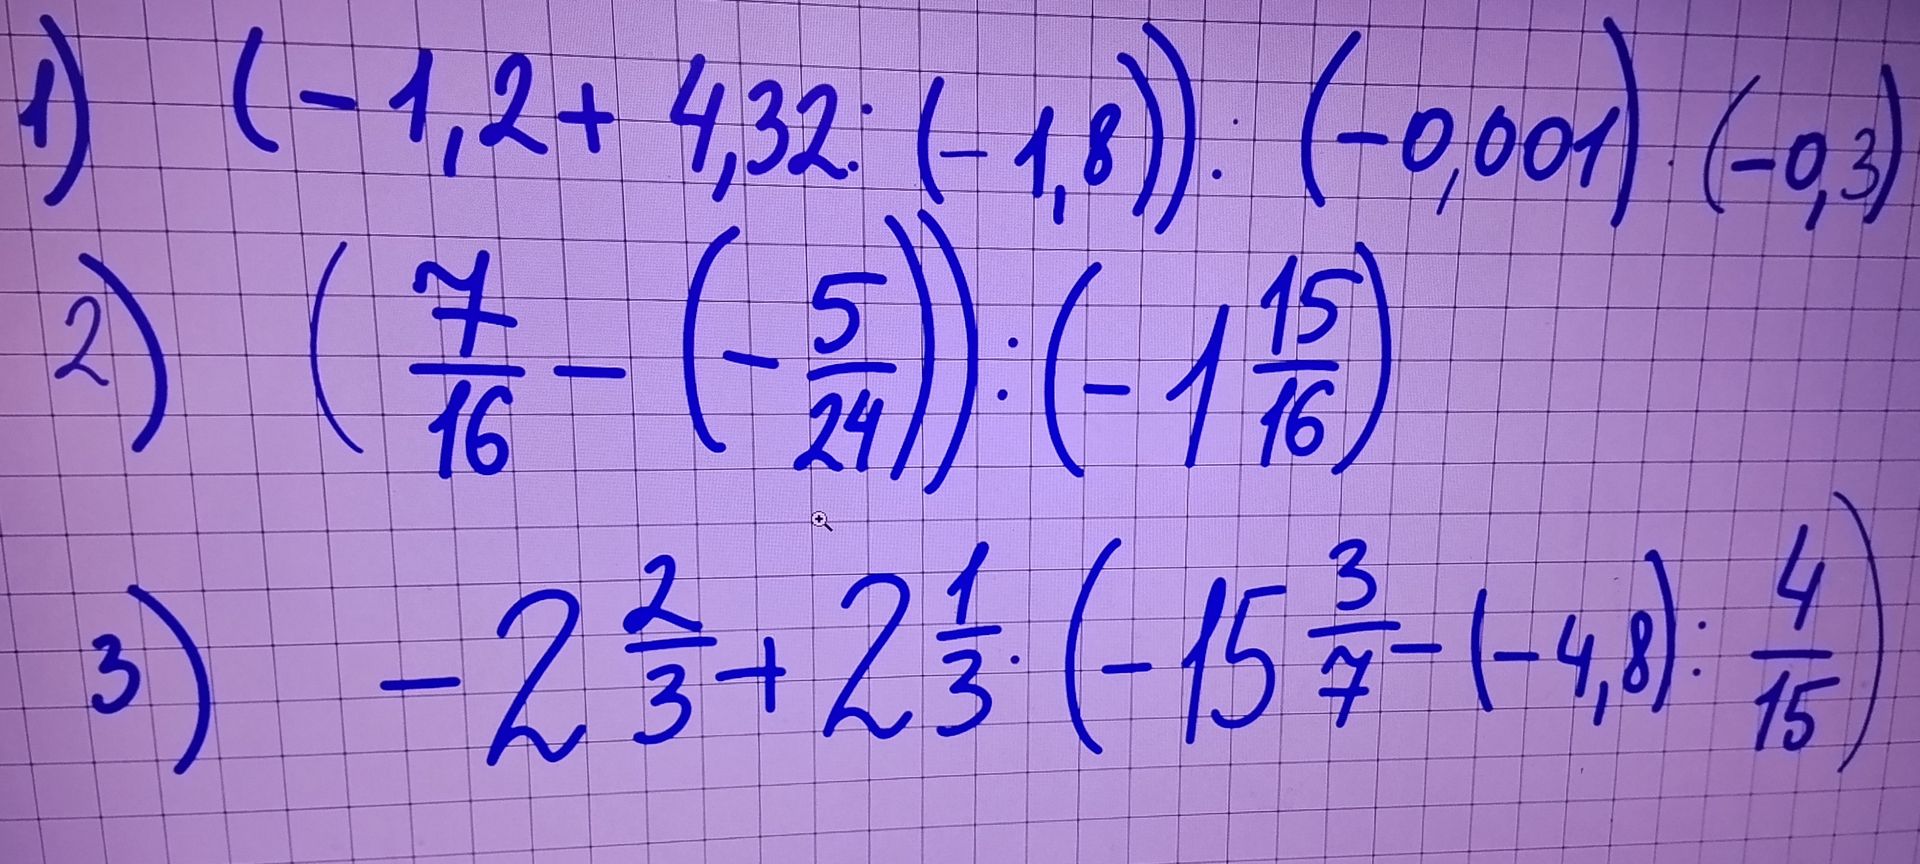 1) (-1,2 + 4,32 : (-1,8)) : (-0,001) · (-0,3)
2) (7/16 - (-5/24)) : (-1 15/16)
3) -2 2/3 + 2 1/3 · (-15 3/7 - (-4,8) : 4/15)